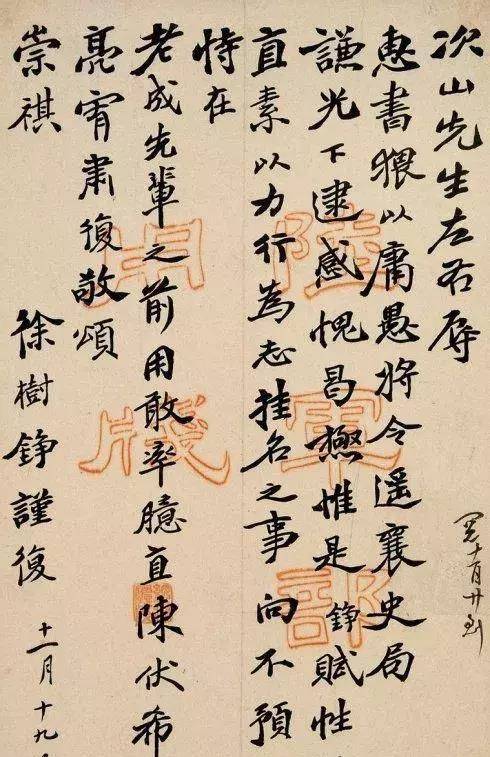 次山先生左右辱
惠書猥以庸愚將令遥襄史局
謙光下逮感愧曷極惟是錚賦性
直素以力行為志挂名之事向不預
恃在
老成先輩之前用敢率臆直陳伏希
亮宥肅復敬頌
崇祺
徐樹錚謹復 十一月十九
十月廿
陸軍部
用牋